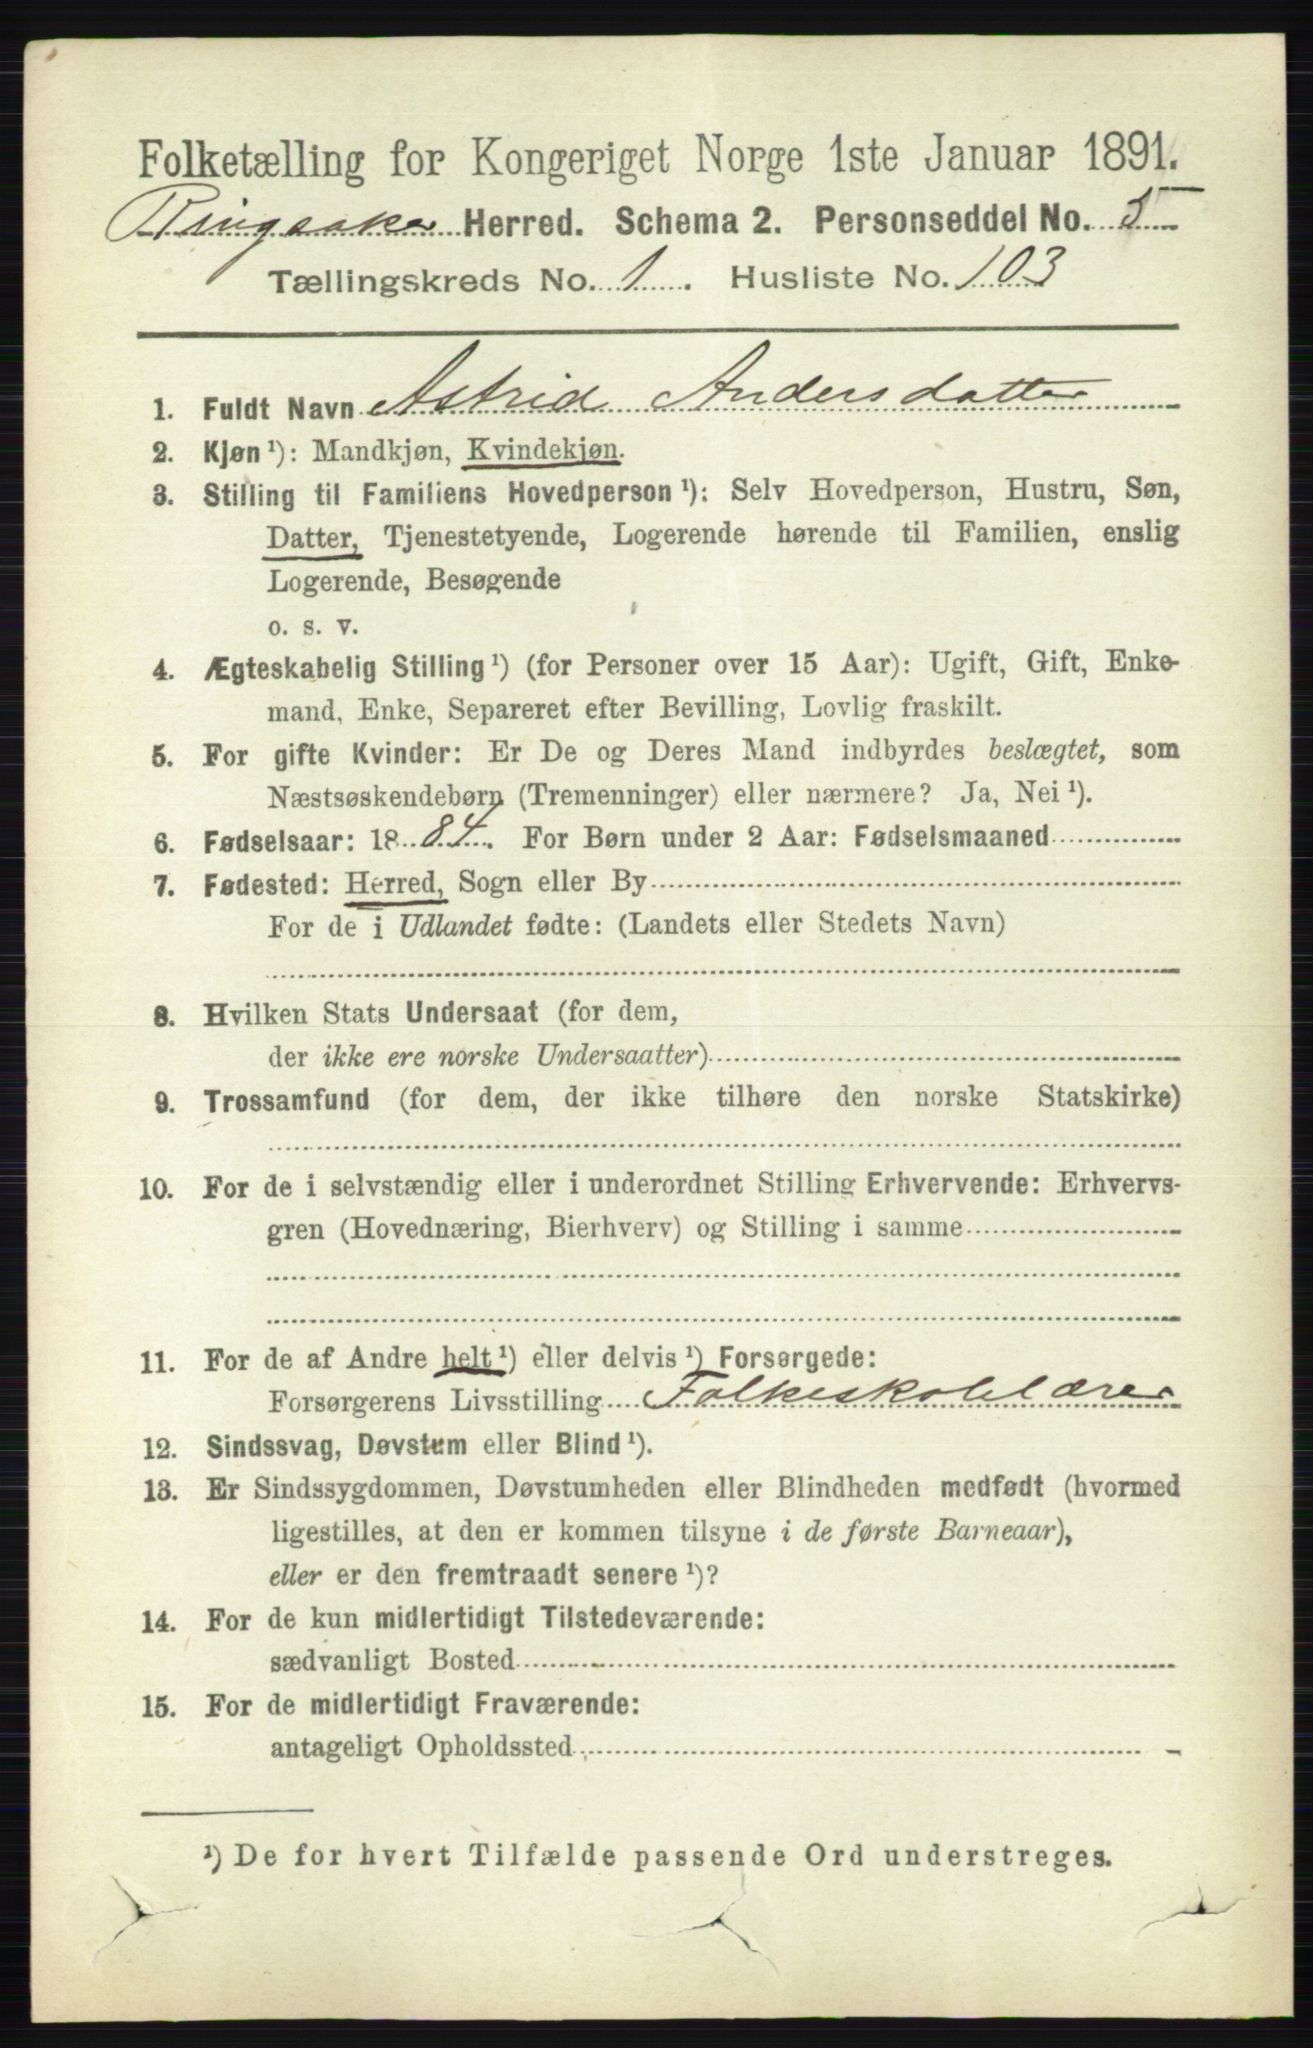 Folketælling for Kongeriget Norge 1ste Januar 1891.
Ringsaker Herred. Schema 2. Personseddel No. 5
Tællingskreds No. 1. Husliste No. 103
1. Fuldt Navn Astrid Andersdatter
2. Kjøn ¹): Mandkjøn, Kvindekjøn.
3. Stilling til Familiens Hovedperson ¹): Selv Hovedperson, Hustru, Søn,
Datter, Tjenestetyende, Logerende hørende til Familien, enslig
Logerende, Besøgende
o. s. v.
4. Ægteskabelig Stilling ¹) (for Personer over 15 Aar): Ugift, Gift, Enke-
mand, Enke, Separeret efter Bevilling, Lovlig fraskilt.
5. For gifte Kvinder: Er De og Deres Mand indbyrdes beslægtet, som
Næstsøskendebørn (Tremenninger) eller nærmere? Ja, Nei ¹).
6. Fødselsaar: 1884. For Børn under 2 Aar: Fødselsmaaned
7. Fødested: Herred, Sogn eller By
For de i Udlandet fødte: (Landets eller Stedets Navn)
8. Hvilken Stats Undersaat (for dem,
der ikke ere norske Undersaatter)
9. Trossamfund (for dem, der ikke tilhøre den norske Statskirke)
10. For de i selvstændig eller i underordnet Stilling Erhvervende: Erhvervs-
gren (Hovednæring, Bierhverv) og Stilling i samme
11. For de af Andre helt ¹) eller delvis ¹) Forsørgede:
Forsørgerens Livsstilling Folkeskolelærer
12. Sindssvag, Døvstum eller Blind ¹).
13. Er Sindssygdommen, Døvstumheden eller Blindheden medfødt (hvormed
ligestilles, at den er kommen tilsyne i de første Barneaar),
eller er den fremtraadt senere ¹)?
14. For de kun midlertidigt Tilstedeværende:
sædvanligt Bosted
15. For de midlertidigt Fraværende:
antageligt Opholdssted
¹) De for hvert Tilfælde passende Ord understreges.